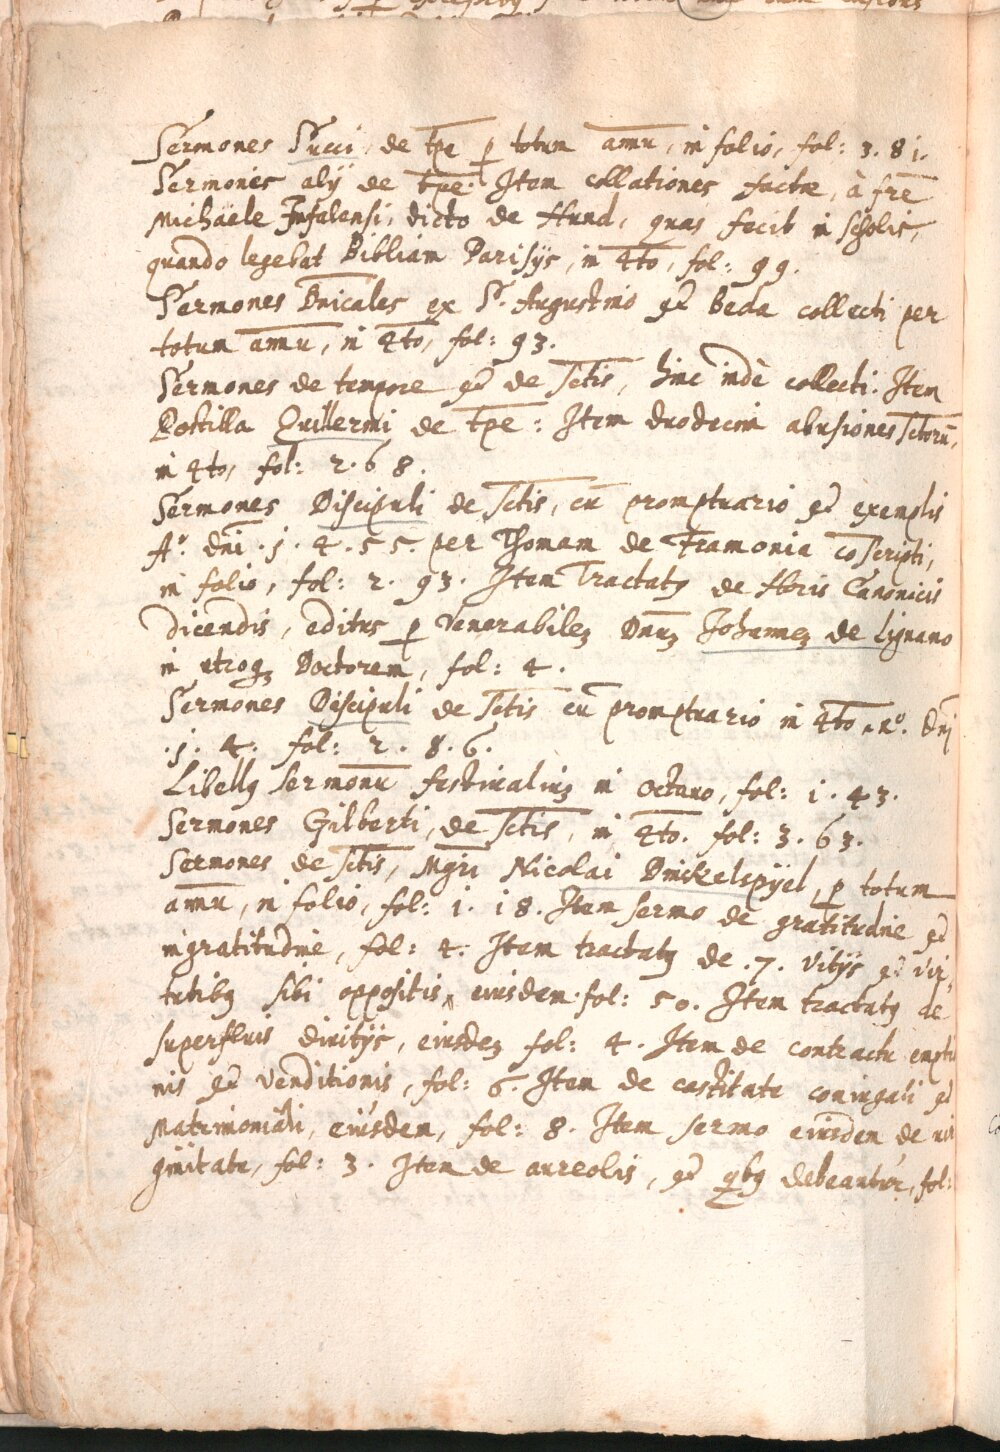 Sermones Succi, de tp̄e p totum annū, in folio, fol: 3. 8 1.
Sermones alij de tp̄e. Item collationes factæ, à frē
Michäele Insulensi, dicto de Hund, quas fecit in scholis,
quando legebat Bibliam Parisijs, in 4to, fol: 99.
Sermones Dnīcales ex S. Augustino et Beda collecti per
totum annū, in 4to, fol: 93.
Sermones de tempore et de Sctis, hinc indè collecti. Item
Postilla Quillermi de tp̄e: Item duodecim abusiones Sctorū,
in 4to, fol: 2. 6 8.
Sermones Discipuli de Sctis, cū promptuario et exemplis
Aº. dnī. 1. 4. 5 5. per Thomam de Framonia cōscripti,
in folio, fol: 2. 93. Item Tractatꝰ de Horis Canonicis
dicendis, editus p Venerabilem Dnūm Johannem de Lignano
in utroqꝫ Doctorem, fol: 4.
Sermones Discipuli de Sctis cū promptuario in 4to Aº. Dnī
.1. 4. fol: 2. 8. 6.
Libellꝰ sermonū festivaliuꝫ in octavo, fol: 1. 43.
Sermones Gilberti, de Sctis, in 4to. fol: 3. 63.
Sermones de Sctis, Mgrī Nicolai Dinckelspÿel, p totum
annū, in folio, fol: 1. 18. Item sermo de gratitudine et
ingratitudine, fol: 4. Item tractatꝰ de .7. vitijs et vir-
tutibꝰ sibi oppositis, eiusdem. fol: 50. Item tractatꝰ de
superfluis divitijs, eiusdeꝫ fol: 4. Item de contractu emptio
nis et venditionis, fol: 6. Item de castitate coniugali et
Matrimoniali, eiusdem, fol: 8. Item sermo eiusdem de vir
ginitate, fol: 3. Item de aureolis, et qbꝰ debeantur, fol: